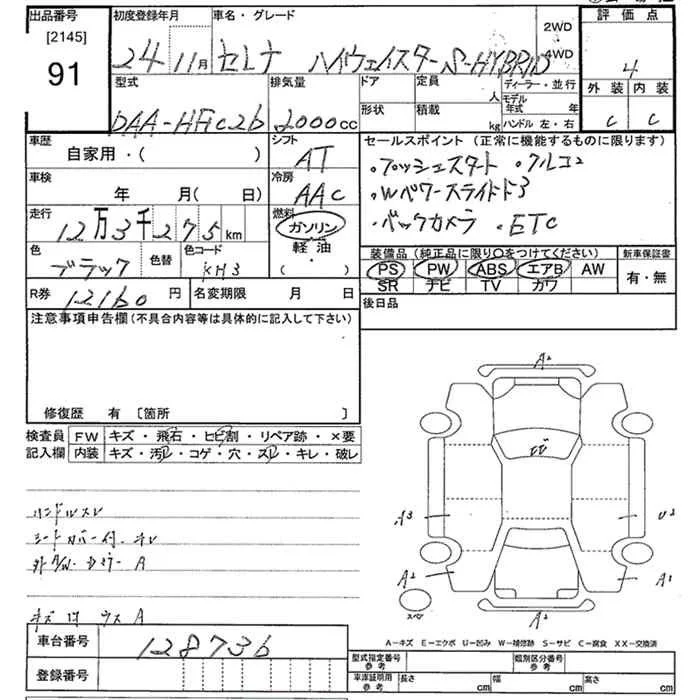 出品番号
[2145]
91
初度登録年月
24 11月
車名・グレード
セレナ ハイウェイスター S-HYBRID
2WD
4WD
評価点
4
外装 内装
C C
型式
DAA-HFC26
排気量
2000cc
ドア
形状
定員
人
積載
kg
ディーラー・並行
モデル年式 年
ハンドル 左・右
車歴
自家用・( )
シフト
AT
セールスポイント (正常に機能するものに限ります)
・プッシュスタート ・クルコン
・Wパワースライドドア
・バックカメラ ・ETC
車検
年 月( 日)
冷房
AAC
走行
12万3千275km
燃料
ガソリン
軽油
( )
色
ブラック
色替
色コード
KH3
装備品 (純正品に限り○をつけてください)
PS PW ABS エアB AW
SR ナビ TV カワ
新車保証書
有・無
R券 12160円
名変期限 月 日
後日品
注意事項申告欄 (不具合内容等は具体的に記入して下さい)
修復歴 有 [箇所 ]
検査員記入欄
FW キズ・飛石・ヒビ割・リペア跡・×要
内装 キズ・汚レ・コゲ・穴・スレ・キレ・破レ
ハンドルスレ
シートカバー付.キレ
キズ凹 ウス A
A2
ヒビ
A3
U3
A2
A1
スペア
A2
A-キズ E-エクボ U-凹み W-補修跡 S-サビ C-腐食 XX-交換済
車台番号 128736
登録番号
型式指定番号 参考
類別区分番号 参考
車庫証明用 参考
長さ cm 幅 cm 高さ cm